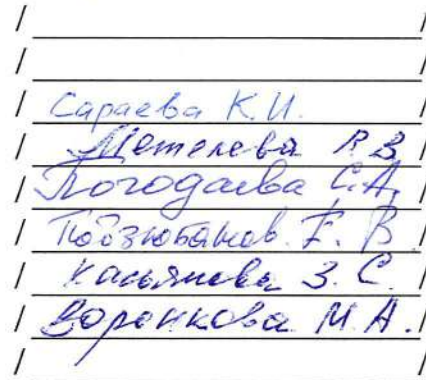 / Сараева К.И. /
/ Метелева Р.В /
/ Погодаева С.А. /
/ Е. В. /
/ Касьянова З.С. /
/ Воронкова М.А. /